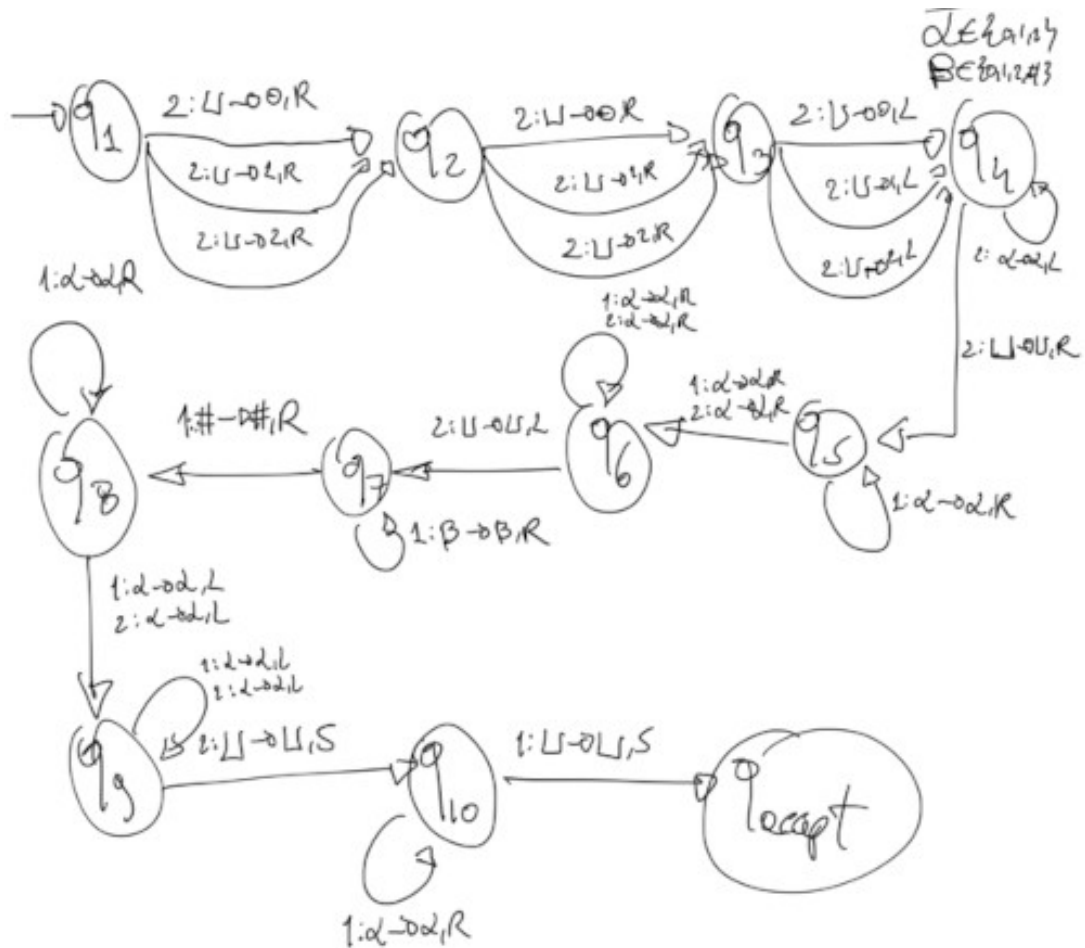 α∈{0,1,2}
β∈{0,1,2,#}
q1
2:⊔→0,R
2:⊔→1,R
2:⊔→2,R
q2
2:⊔→0,R
2:⊔→1,R
2:⊔→2,R
q3
2:⊔→0,L
2:⊔→1,L
2:⊔→2,L
q4
2:α→α,L
2:⊔→⊔,R
q5
1:α→α,R
1:α→α,R
2:α→α,R
q6
1:α→α,R
2:α→α,R
2:⊔→⊔,L
q7
1:β→β,R
1:#→#,R
q8
1:α→α,R
1:α→α,L
2:α→α,L
q9
1:α→α,L
2:α→α,L
2:⊔→⊔,S
q10
1:α→α,R
1:⊔→⊔,S
qaccept